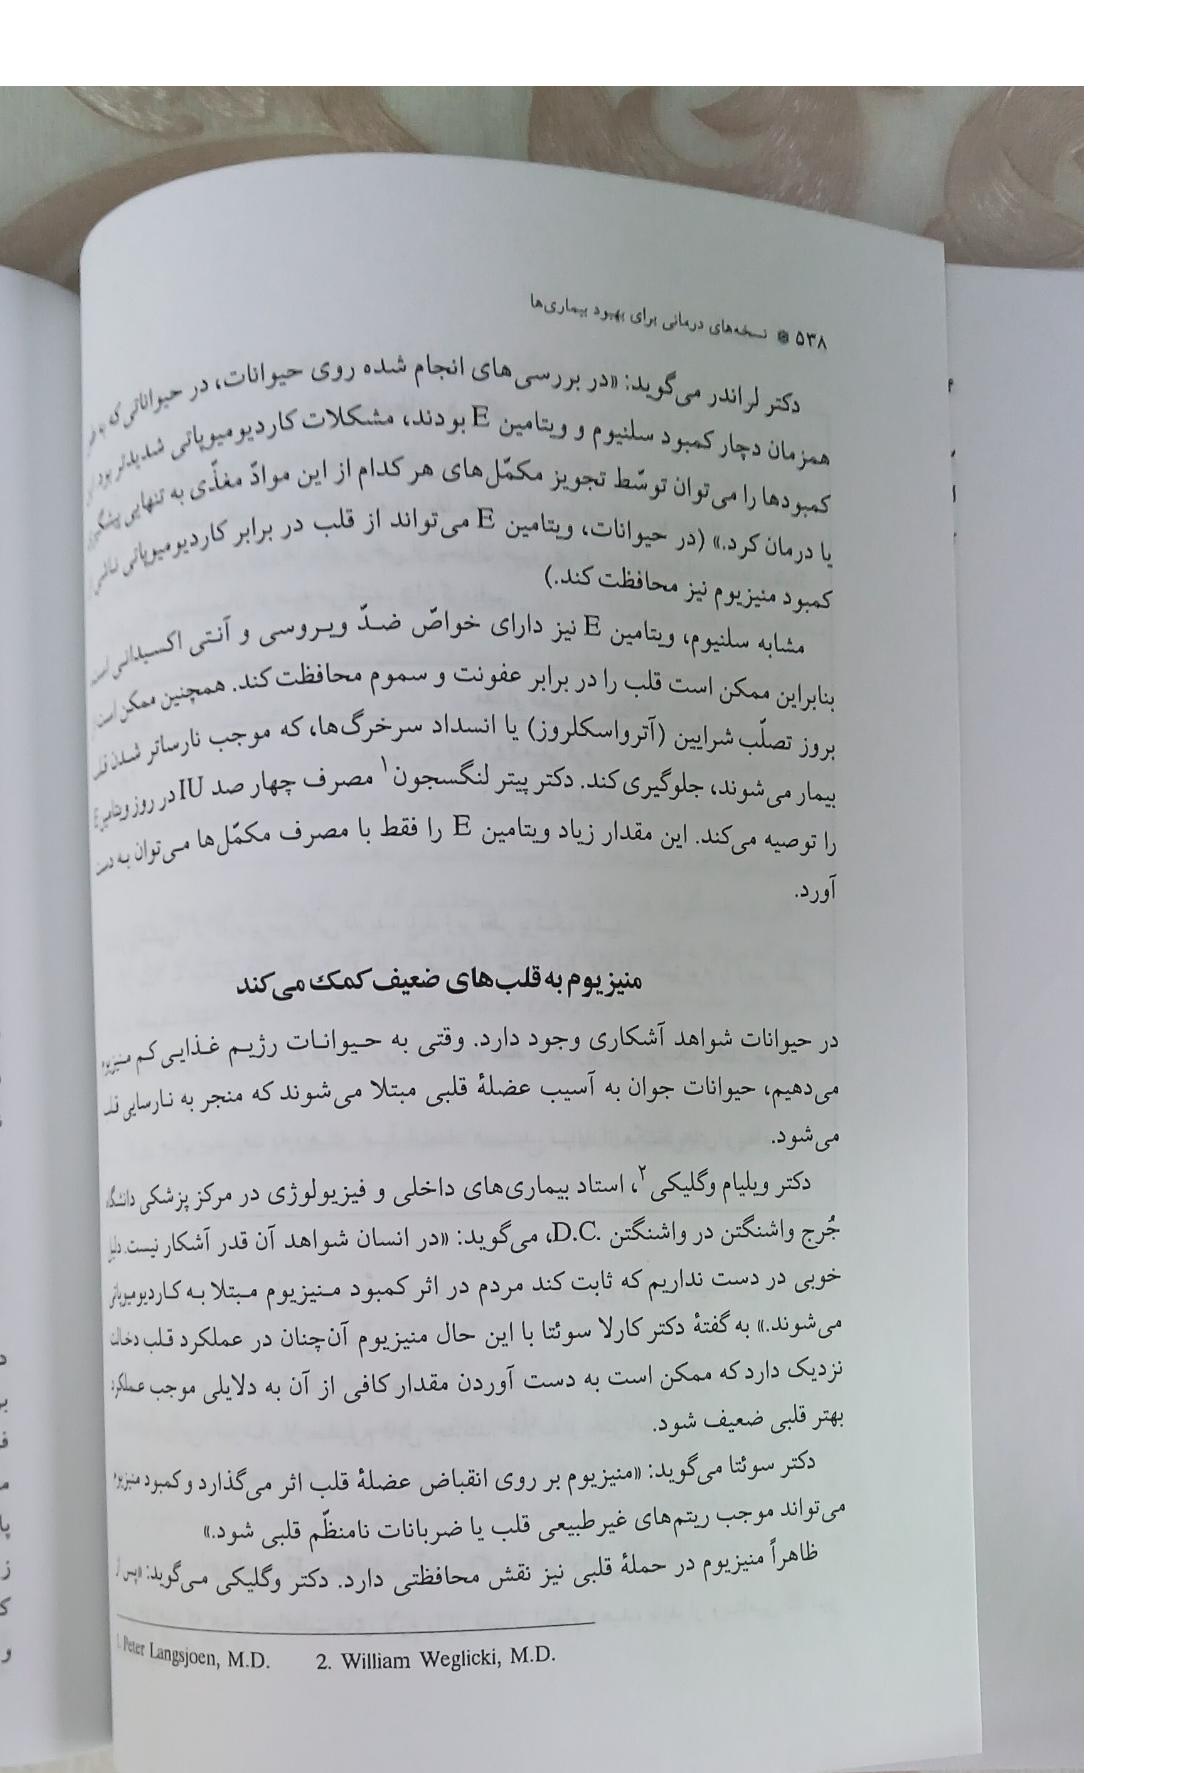 ۵۳۸ نسخه‌های درمانی برای بهبود بیماری‌ها
دکتر لراندر می‌گوید: «در بررسی‌های انجام شده روی حیوانات، در حیواناتی که به طور
همزمان دچار کمبود سلنیوم و ویتامین E بودند، مشکلات کاردیومیوپاتی شدیدتر بود. این
کمبودها را می‌توان توسّط تجویز مکمّل‌های هر کدام از این موادّ مغذّی به تنهایی پیشگیری
یا درمان کرد.» (در حیوانات، ویتامین E می‌تواند از قلب در برابر کاردیومیوپاتی ناشی از
کمبود منیزیوم نیز محافظت کند.)
مشابه سلنیوم، ویتامین E نیز دارای خواصّ ضدّ ویروسی و آنتی اکسیدانی است.
بنابراین ممکن است قلب را در برابر عفونت و سموم محافظت کند. همچنین ممکن است از
بروز تصلّب شرایین (آترواسکلروز) یا انسداد سرخرگ‌ها، که موجب نارساتر شدن قلب
بیمار می‌شوند، جلوگیری کند. دکتر پیتر لنگسجون۱ مصرف چهار صد IU در روز ویتامین E
را توصیه می‌کند. این مقدار زیاد ویتامین E را فقط با مصرف مکمّل‌ها می‌توان به دست
آورد.
منیزیوم به قلب‌های ضعیف کمک می‌کند
در حیوانات شواهد آشکاری وجود دارد. وقتی به حیوانات رژیم غذایی کم منیزیوم
می‌دهیم، حیوانات جوان به آسیب عضلهٔ قلبی مبتلا می‌شوند که منجر به نارسایی قلب
می‌شود.
دکتر ویلیام وگلیکی۲، استاد بیماری‌های داخلی و فیزیولوژی در مرکز پزشکی دانشگاه
جُرج واشنگتن در واشنگتن D.C.، می‌گوید: «در انسان شواهد آن قدر آشکار نیست. دلیل
خوبی در دست نداریم که ثابت کند مردم در اثر کمبود منیزیوم مبتلا به کاردیومیوپاتی
می‌شوند.» به گفتهٔ دکتر کارلا سوئتا با این حال منیزیوم آن‌چنان در عملکرد قلب دخالت
نزدیک دارد که ممکن است به دست آوردن مقدار کافی از آن به دلایلی موجب عملکرد
بهتر قلبی ضعیف شود.
دکتر سوئتا می‌گوید: «منیزیوم بر روی انقباض عضلهٔ قلب اثر می‌گذارد و کمبود منیزیوم
می‌تواند موجب ریتم‌های غیرطبیعی قلب یا ضربانات نامنظّم قلبی شود.»
ظاهراً منیزیوم در حملهٔ قلبی نیز نقش محافظتی دارد. دکتر وگلیکی می‌گوید: «پس از
1. Peter Langsjoen, M.D. 2. William Weglicki, M.D.